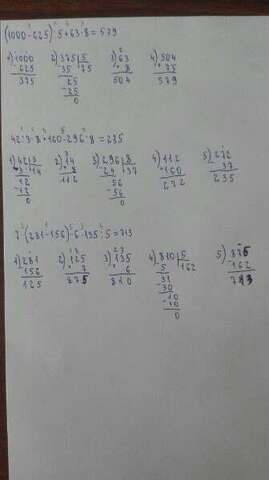 (1000-625):5+63·8=579
1) 1000 2) 375 5 3) 63 4) 504
-625 -35 75 ×8 +75
375 25 504 579
-25
0
42:3·8+160-296:8=235
1) 42 3 2) 14 3) 296 8 4) 112 5) 272
-3 14 ×8 -24 37 +160 -37
12 112 56 272 235
-12 -56
0 0
7·(281-156)-6·135:5=713
1) 281 2) 125 3) 135 4) 810 5 5) 875
-156 ×7 ×6 -5 162 -162
125 875 810 31 713
-30
10
-10
0